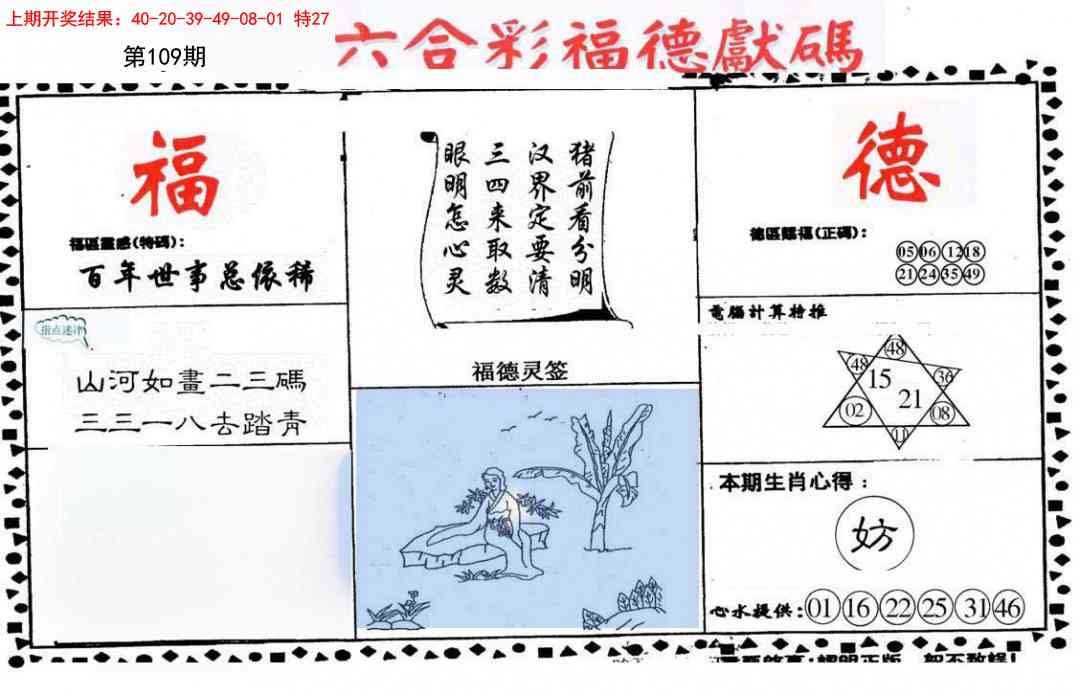 上期开奖结果：40-20-39-49-08-01 特27
第109期
六合彩福德獻碼
福
福區靈感(特碼)：
百年世事总依稀
指点迷津
山河如畫二三碼
三三一八去踏青
猪前看分明
汉界定要清
三四来取数
眼明怎心灵
福德灵签
德
德區賜福(正碼)：
05 06 12 18
21 24 35 49
電腦計算特推
48
48 36
15
21
02 08
11
本期生肖心得：
妨
心水提供：01 16 22 25 31 46